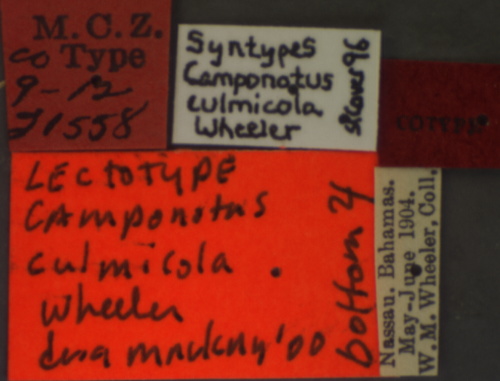 M.C.Z.
co Type
9-12
21558
Syntypes
Camponotus
culmicola
Wheeler
LECTOTYPE
CAmponotus
culmicola .
wheeler
bottom
Nassau. Bahamas.
May-June 1904.
W.M. Wheeler, Coll.